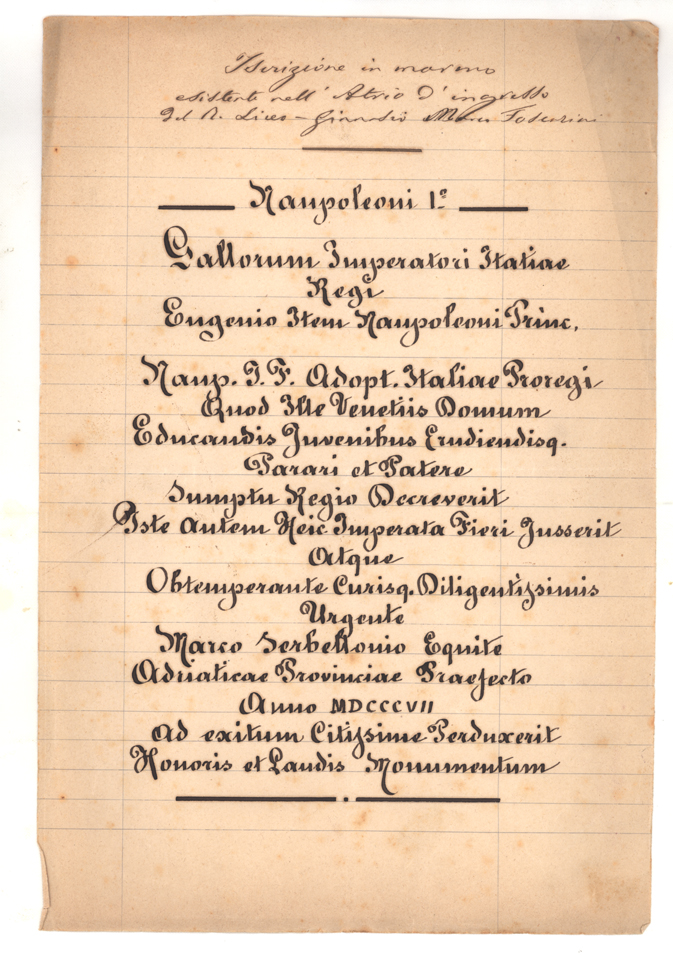 Iscrizione in marmo
esistente nell' Atrio d' ingresso
del R. Liceo - Ginnasio Marco Foscarini
Naupoleoni 1º
Gallorum Imperatori Italiae
Regi
Eugenio Item Naupoleoni Princ.
Naup. I. F. Adopt. Italiae Proregi
Quod Ille Venetiis Domum
Educandis Juvenibus Erudiendisq.
Parari et Patere
Sumptu Regio Decreverit
Iste autem Heic Imperata Fieri Jusserit
Atque
Obtemperante Curisq. Diligentissimis
Urgente
Marco Serbellonio Equite
Adriaticae Provinciae Praefecto
Anno MDCCCVII
Ad exitum Citissime Perduxerit
Honoris et Laudis Monumentum